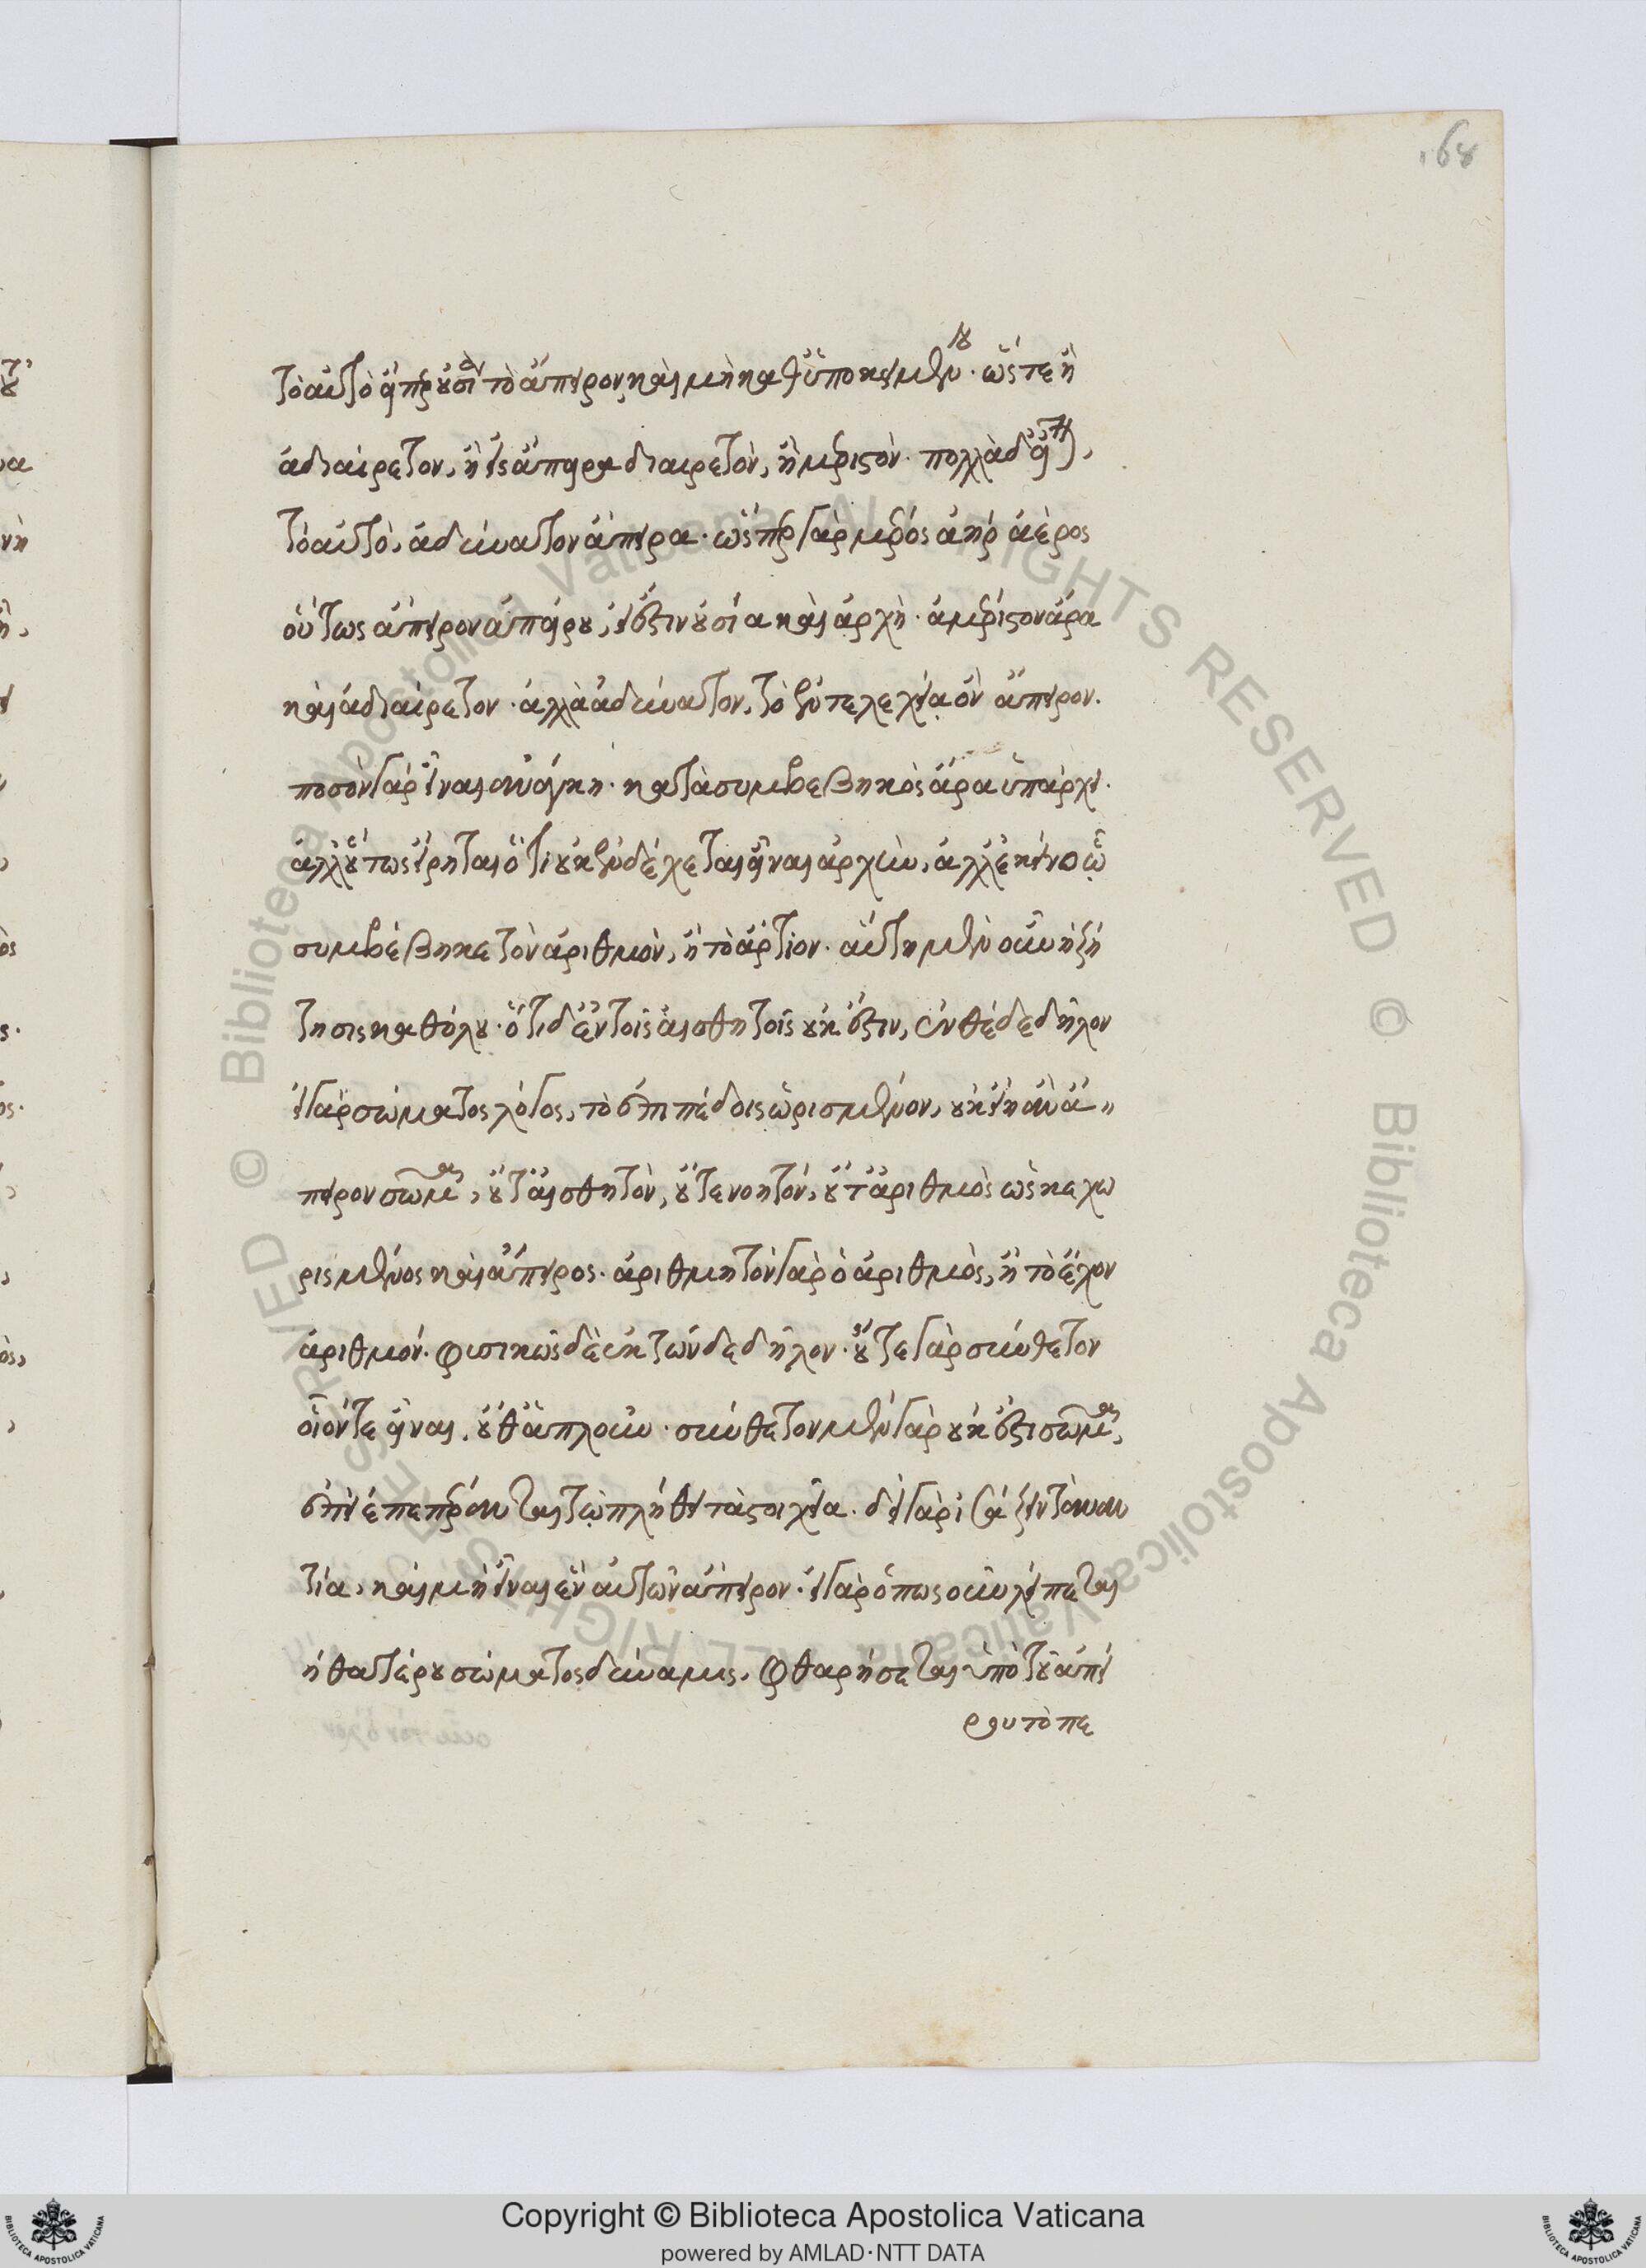 168
τὸ αὐτὸ εἴπερ οὐσία τὸ ἄπειρον, καὶ μὴ καθ' ὑποκειμένου. ὥστε ἢ
ἀδιαίρετον, ἢ εἰς ἄπειρα διαιρετὸν, ἢ μεριστόν. πολλὰ δ' εἶναι,
τὸ αὐτὸ, ἀδύνατον ἄπειρα. ὥσπερ γὰρ μέρος ἀὴρ ἀέρος
οὕτως ἄπειρον ἀπείρου, εἰ ἔστιν οὐσία καὶ ἀρχὴ. ἀμέριστον ἄρα
καὶ ἀδιαίρετον. ἀλλὰ ἀδύνατον, τὸ ἐντελεχείᾳ ὂν ἄπειρον.
ποσὸν γὰρ εἶναι ἀνάγκη. κατὰ συμβεβηκὸς ἄρα ὑπάρχει.
ἀλλ' οὕτως εἴρηται ὅτι οὐκ ἐνδέχεται εἶναι ἀρχὴν, ἀλλ' ἐκεῖνο ᾧ
συμβέβηκε τὸν ἀριθμὸν, ἢ τὸ ἄρτιον. αὕτη μὲν οὖν ἡ ζή
τησις καθόλου. ὅτι δ' ἐν τοῖς αἰσθητοῖς οὐκ ἔστιν, ἐνθέδε δῆλον
εἰ γὰρ σώματος λόγος, τὸ ἐπιπέδοις ὡρισμένον, οὐκ εἴη ἂν ἄ〃
πειρον σῶμα, οὔτ' αἰσθητὸν, οὔτε νοητόν, οὔτ' ἀριθμὸς ὡς κεχω
ρισμένος καὶ ἄπειρος. ἀριθμητὸν γὰρ ὁ ἀριθμὸς, ἢ τὸ ἔχον
ἀριθμόν. φυσικῶς δὲ ἐκ τῶνδε δῆλον. οὔτε γὰρ σύνθετον
οἷόν τε εἶναι, οὔθ' ἁπλοῦν. σύνθετον μὲν γὰρ οὐκ ἔσται σῶμα,
ἐπεὶ ἐπεπέρανται τῷ πλήθει τὰ στοιχεῖα. δεῖ γὰρ ἰσάζειν τὰ ἐναν
τία, καὶ μὴ εἶναι ἓν αὐτῶν ἄπειρον. εἰ γὰρ ὁπωσοῦν λείπεται
ἡ θατέρου σώματος δύναμις, φθαρήσεται ὑπὸ τοῦ ἀπεί
ρου τὸ πε
Copyright © Biblioteca Apostolica Vaticana
powered by AMLAD·NTT DATA